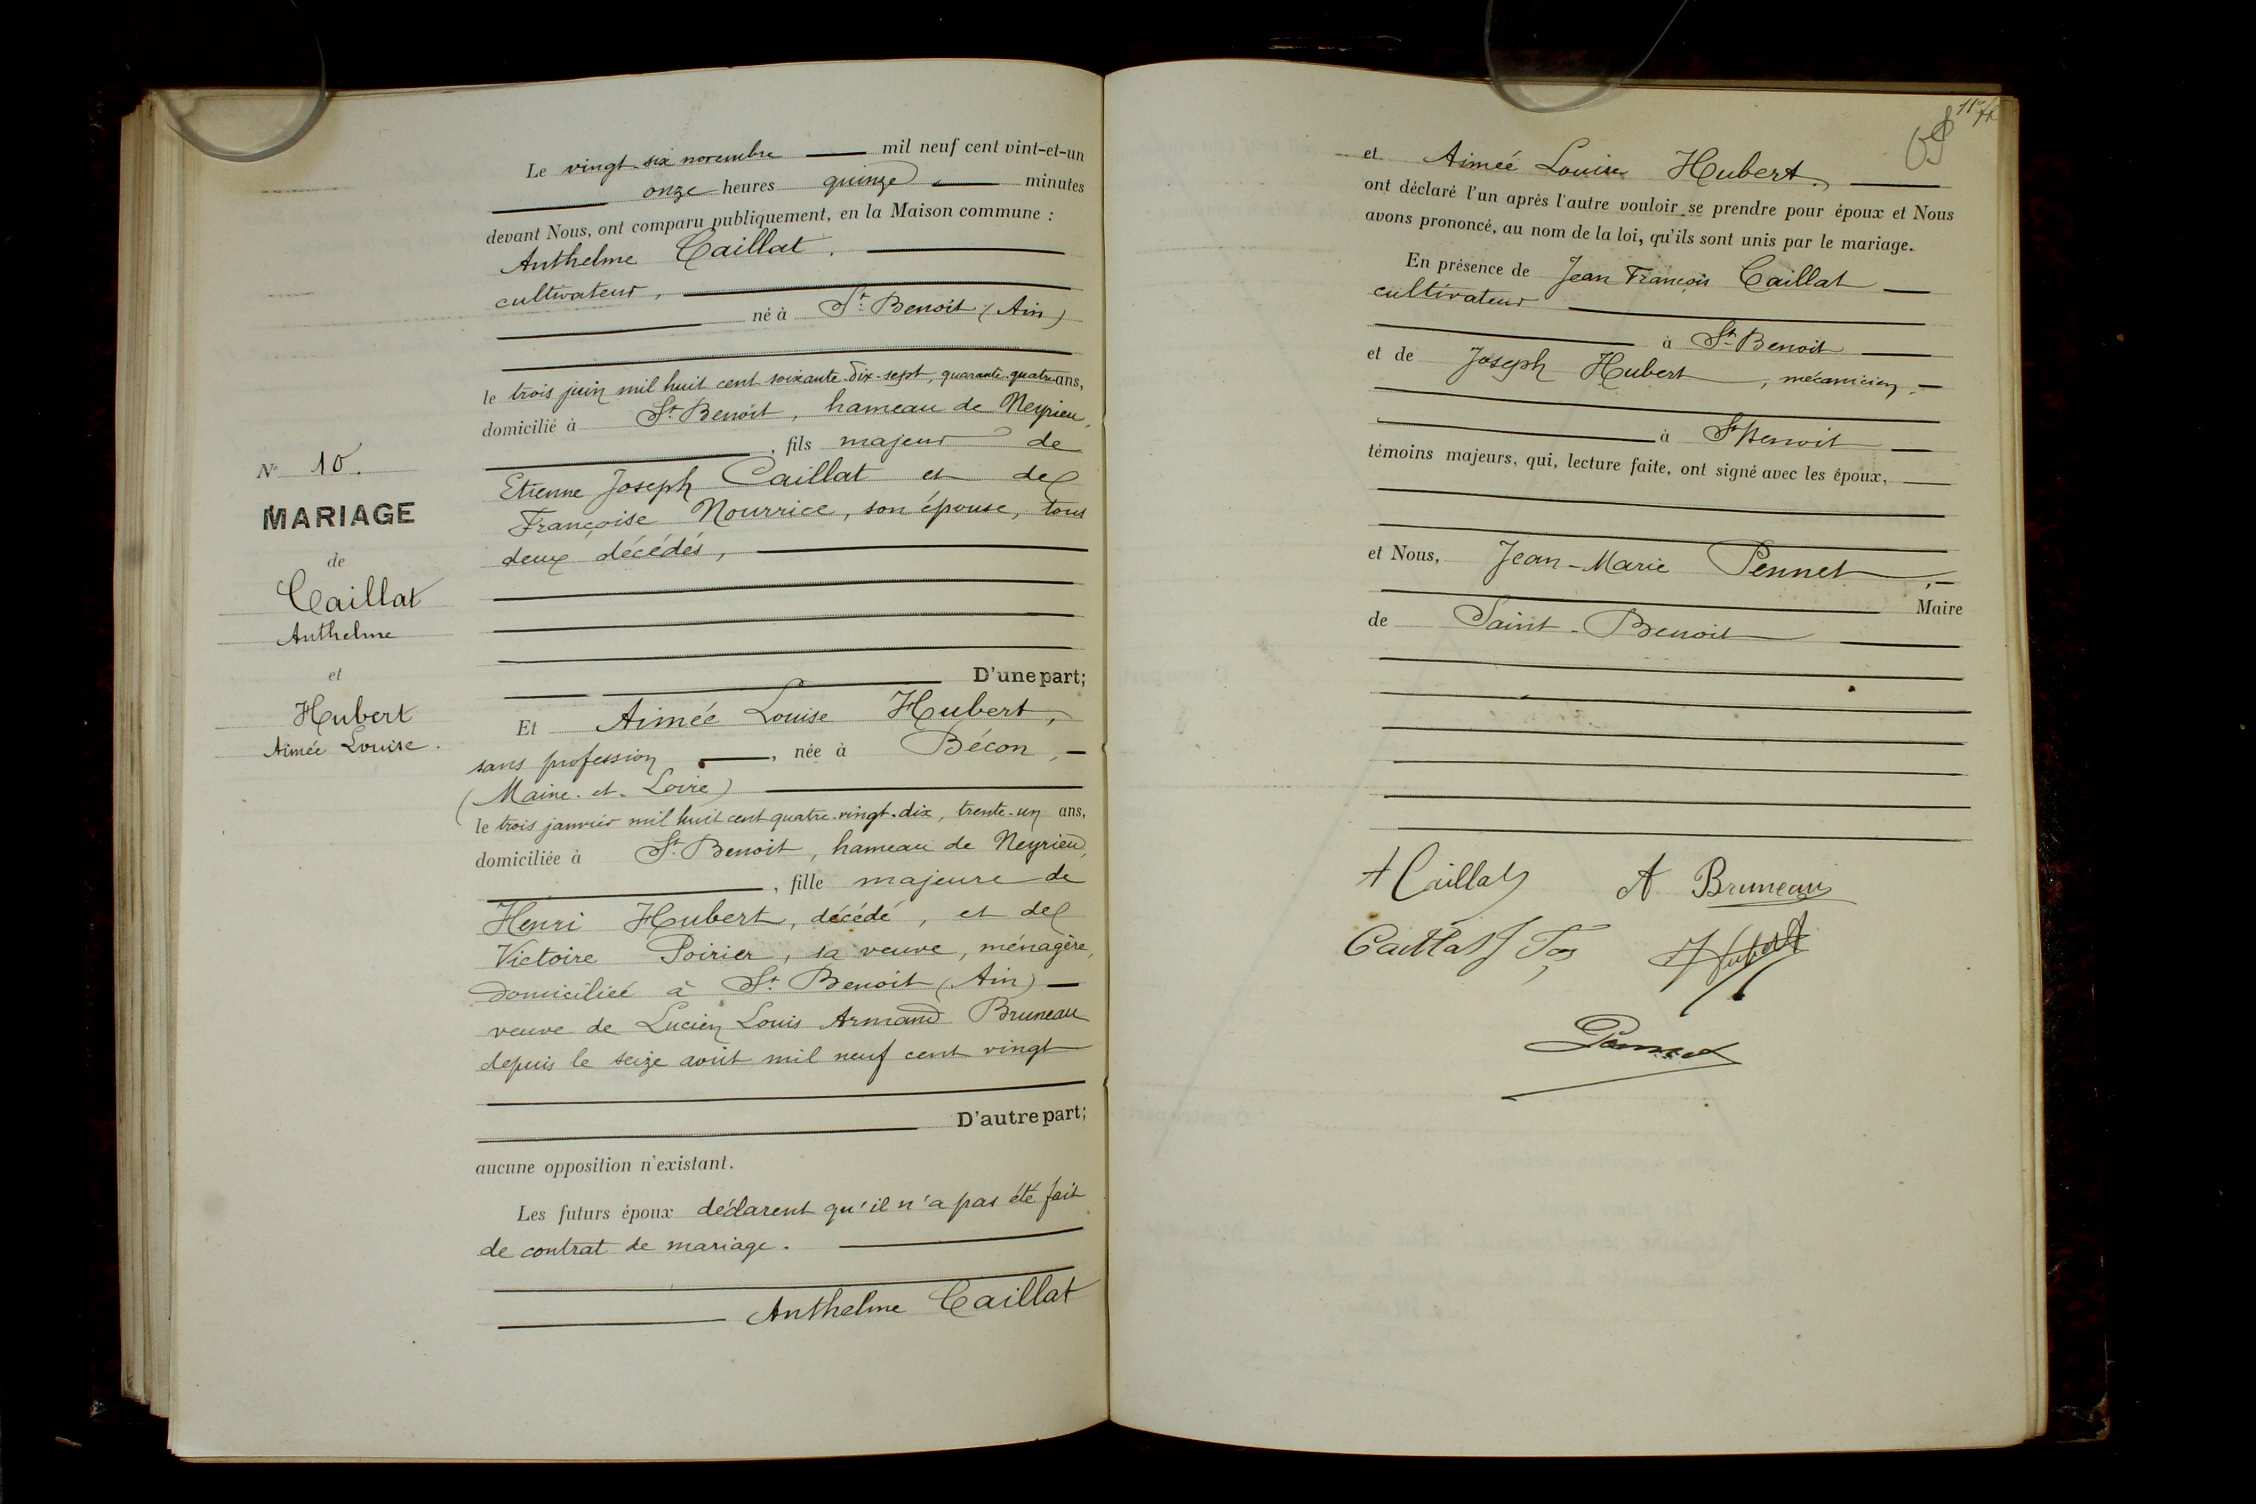 N° 10.
MARIAGE
de
Caillat
Anthelme
et
Hubert
Aimée Louise.
Le vingt-six novembre mil neuf cent vint-et-un
onze heures quinze minutes
devant Nous, ont comparu publiquement, en la Maison commune :
Anthelme Caillat.
cultivateur,
né à St Benoit (Ain)
le trois juin mil huit cent soixante-dix-sept, quarante-quatre ans,
domicilié à St Benoit, hameau de Neyrieu,
, fils majeur de
Etienne Joseph Caillat et de
Françoise Nourrice, son épouse, tous
deux décédés,
D'une part;
Et Aimée Louise Hubert,
sans profession , née à Bécon,
(Maine-et-Loire)
le trois janvier mil huit cent quatre-vingt-dix, trente-un ans,
domiciliée à St Benoit, hameau de Neyrieu,
, fille majeure de
Henri Hubert, décédé, et de
Victoire Poirier, sa veuve, ménagère,
domiciliée à St Benoit (Ain)
veuve de Lucien Louis Armand Bruneau
depuis le seize août mil neuf cent vingt
D'autre part;
aucune opposition n'existant.
Les futurs époux déclarent qu'il n'a pas été fait
de contrat de mariage.
Anthelme Caillat
et Aimée Louise Hubert.
ont déclaré l'un après l'autre vouloir se prendre pour époux et Nous
avons prononcé, au nom de la loi, qu'ils sont unis par le mariage.
En présence de Jean François Caillat
cultivateur
à St Benoit
et de Joseph Hubert, mécanicien,
à St Benoit
témoins majeurs, qui, lecture faite, ont signé avec les époux,
et Nous, Jean-Marie Pennet,
Maire
de Saint-Benoit
A Caillat A Bruneau
Caillat J Hubert
Pennet